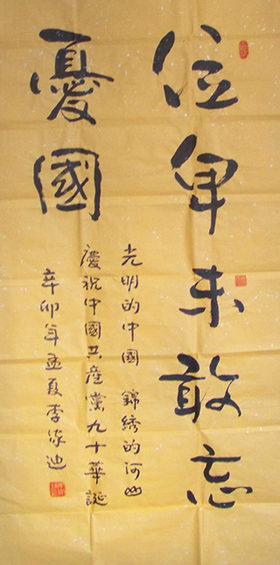 位卑未敢忘
憂國
光明的中國 錦綉的河山
慶祝中國共産黨九十華誕
辛卯年孟夏李家迪